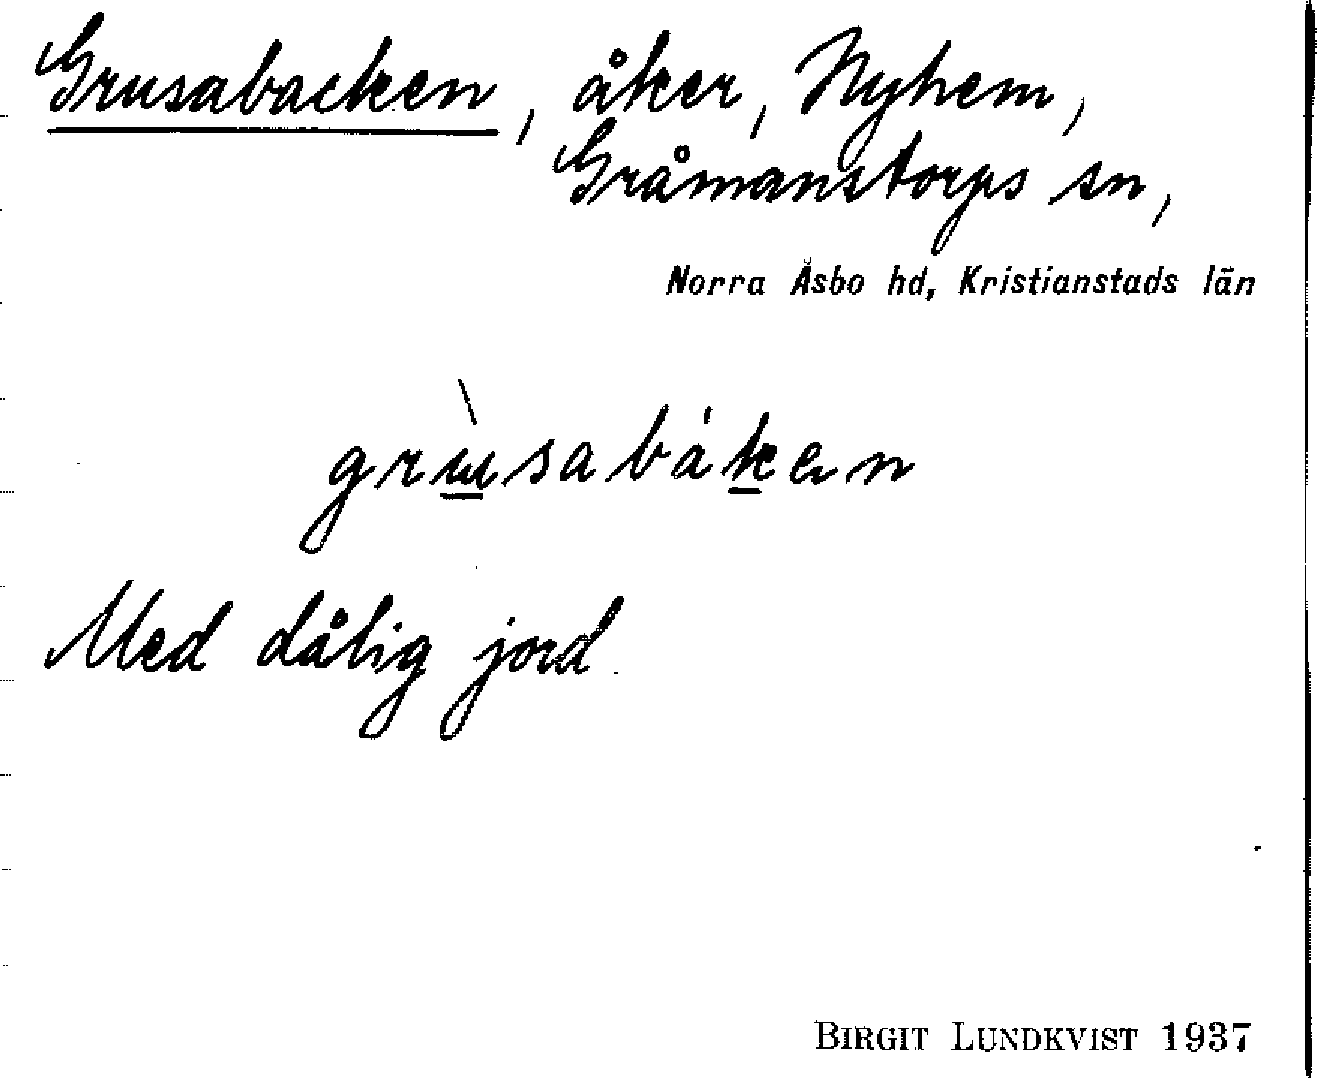 Grusabacken, åker, Nyhem,
Gråmanstorps sn,
Norra Åsbo hd, Kristianstads län
grùsabákən
Med dålig jord.
BIRGIT LUNDKVIST 1937